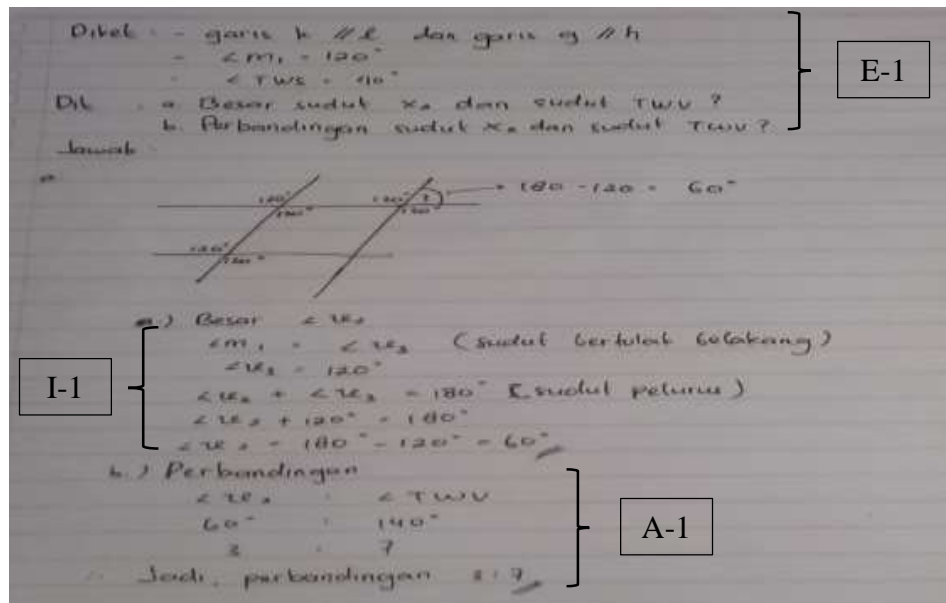 Diket : - garis k // l dan garis g // h
- ∠m₁ = 120°
- ∠TWS = 40°
E-1
Dit : a. Besar sudut x₂ dan sudut TWV ?
b. Perbandingan sudut x₂ dan sudut TWV ?
Jawab :
a.
120° 120° 2 → 180 - 120 = 60°
120° 120°
120°
120°
a.) Besar ∠x₂
∠m₁ = ∠x₃ (sudut bertolak belakang)
∠x₃ = 120°
I-1
∠x₂ + ∠x₃ = 180° (sudut pelurus)
∠x₂ + 120° = 180°
∠x₂ = 180° - 120° = 60°
b.) Perbandingan
∠x₂ : ∠TWV
60° : 140°
A-1
3 : 7
∴ Jadi, perbandingan 3 : 7